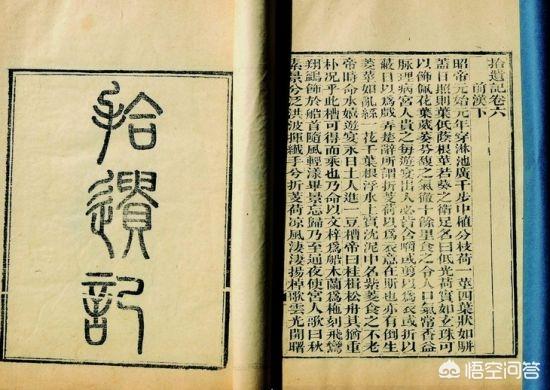 拾遺記卷六
前漢下
昭帝元始元年穿淋池廣千步中植分枝荷一莖四葉狀如駢
蓋日照則葉低蔭根莖若葵之衛足名曰低光荷實如玄珠可
以飾佩花葉葳萎芬馥之氣徹十餘里食之令人口氣常香益
脉理病宮人貴之每遊宴出入必皆含嚼或剪以爲衣或折以
蔽日以爲戲弄楚辭所謂折芰荷以爲衣意在斯也亦有倒生
菱莖如亂絲一花千葉根浮水上實沉泥中名紫菱食之不老
帝時命水嬉遊宴永日土人進一豆槽帝曰桂楫松舟其猶重
朴况乎此槽可得而乘也乃命以文梓爲船木蘭爲柂刻飛鸞
翔鷁飾於船首隨風輕漾畢景忘歸乃至通夜使宮人歌曰秋
素景兮泛洪波揮纖手兮折芰荷凉風淒淒揚棹歌雲光開曙
拾遺記
悟空问答